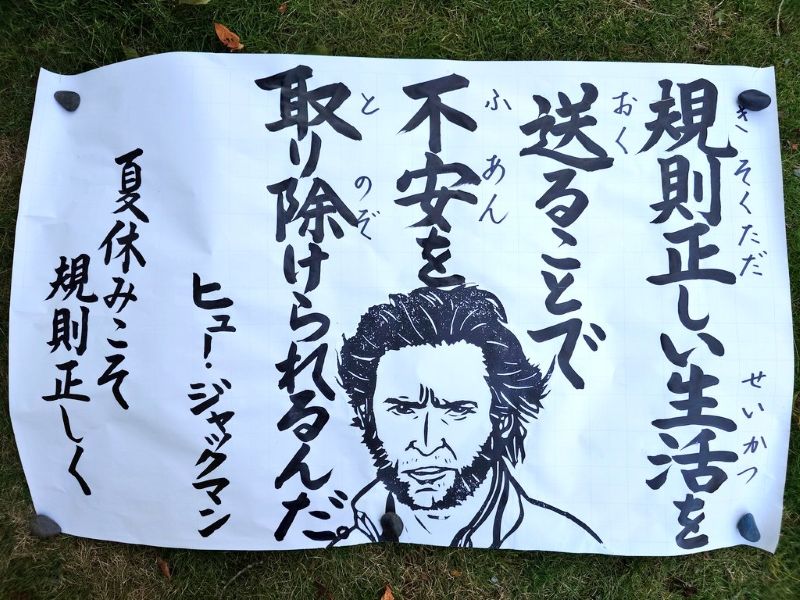 規則正しい生活を
きそくただ
せいかつ
送ることで
おく
不安を
ふあん
取り除けられるんだ。
とのぞ
ヒュー・ジャックマン
夏休みこそ
規則正しく